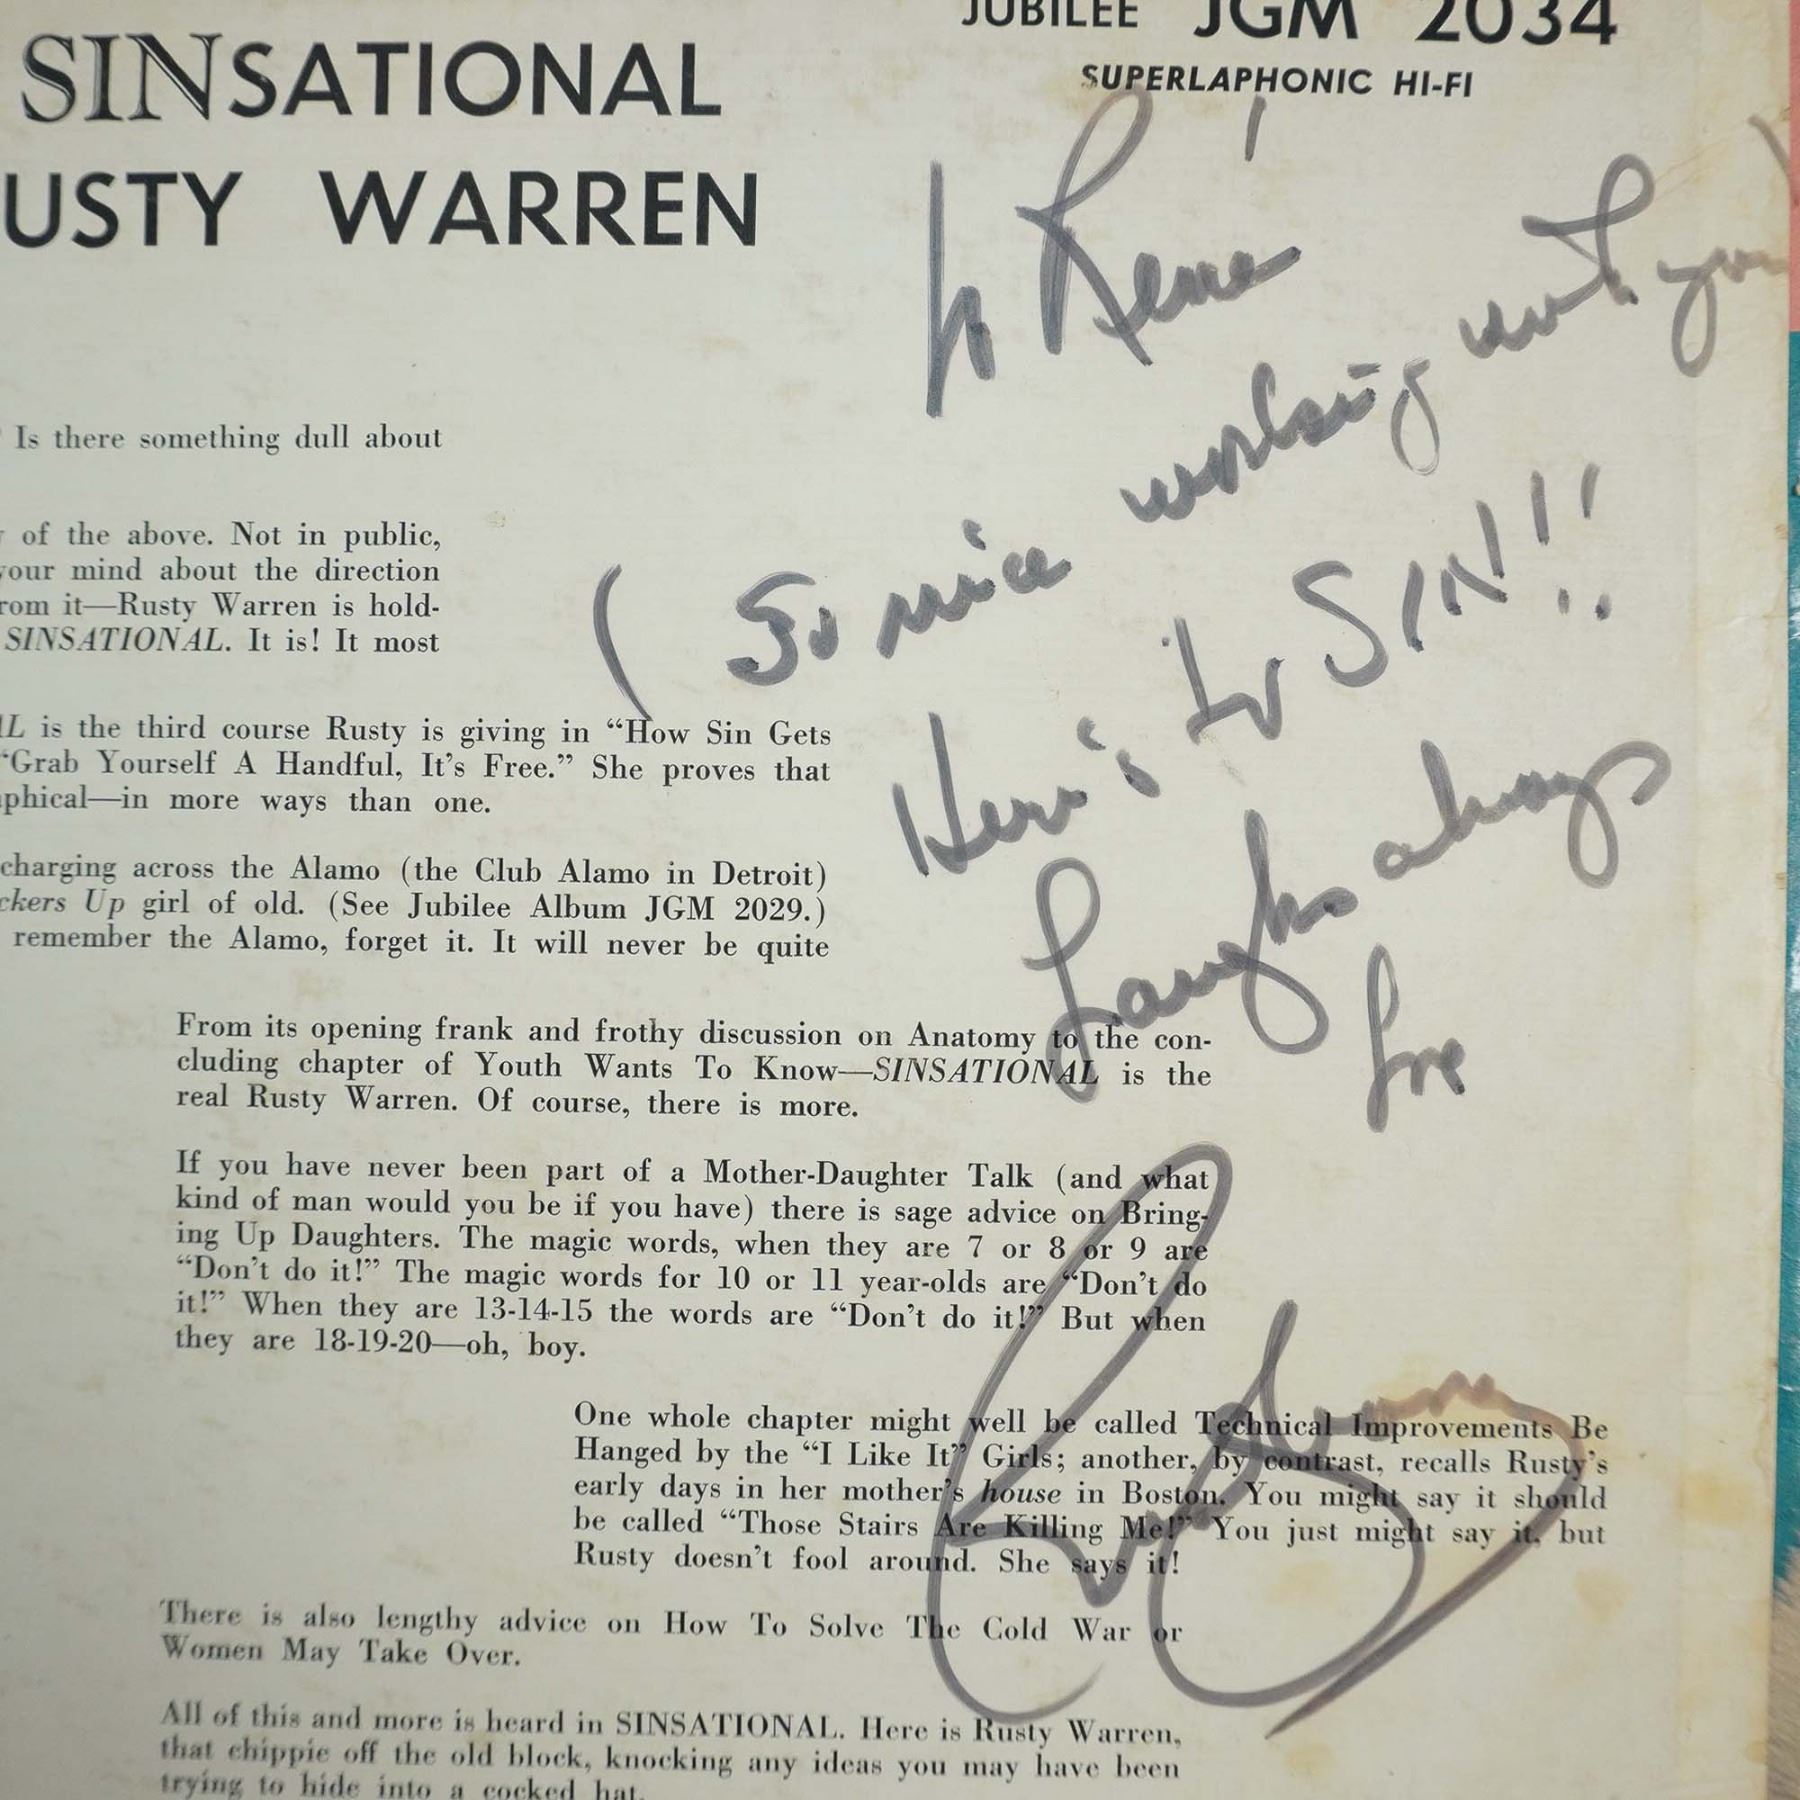 JUBILEE JGM 2034
SUPERLAPHONIC HI-FI
SINSATIONAL
USTY WARREN
to René
(So nice working with you)
Here's to SIN!!!
Laughs always
Love
Rusty
Is there something dull about
of the above. Not in public,
your mind about the direction
rom it—Rusty Warren is hold-
SINSATIONAL. It is! It most
AL is the third course Rusty is giving in “How Sin Gets
“Grab Yourself A Handful, It's Free.” She proves that
phical—in more ways than one.
charging across the Alamo (the Club Alamo in Detroit)
ckers Up girl of old. (See Jubilee Album JGM 2029.)
remember the Alamo, forget it. It will never be quite
From its opening frank and frothy discussion on Anatomy to the con-
cluding chapter of Youth Wants To Know—SINSATIONAL is the
real Rusty Warren. Of course, there is more.
If you have never been part of a Mother-Daughter Talk (and what
kind of man would you be if you have) there is sage advice on Bring-
ing Up Daughters. The magic words, when they are 7 or 8 or 9 are
“Don't do it!” The magic words for 10 or 11 year-olds are “Don't do
it!” When they are 13-14-15 the words are “Don't do it!” But when
they are 18-19-20—oh, boy.
One whole chapter might well be called Technical Improvements Be
Hanged by the “I Like It” Girls; another, by contrast, recalls Rusty's
early days in her mother's house in Boston. You might say it should
be called “Those Stairs Are Killing Me!” You just might say it, but
Rusty doesn't fool around. She says it!
There is also lengthy advice on How To Solve The Cold War or
Women May Take Over.
All of this and more is heard in SINSATIONAL. Here is Rusty Warren,
that chippie off the old block, knocking any ideas you may have been
trying to hide into a cocked hat.